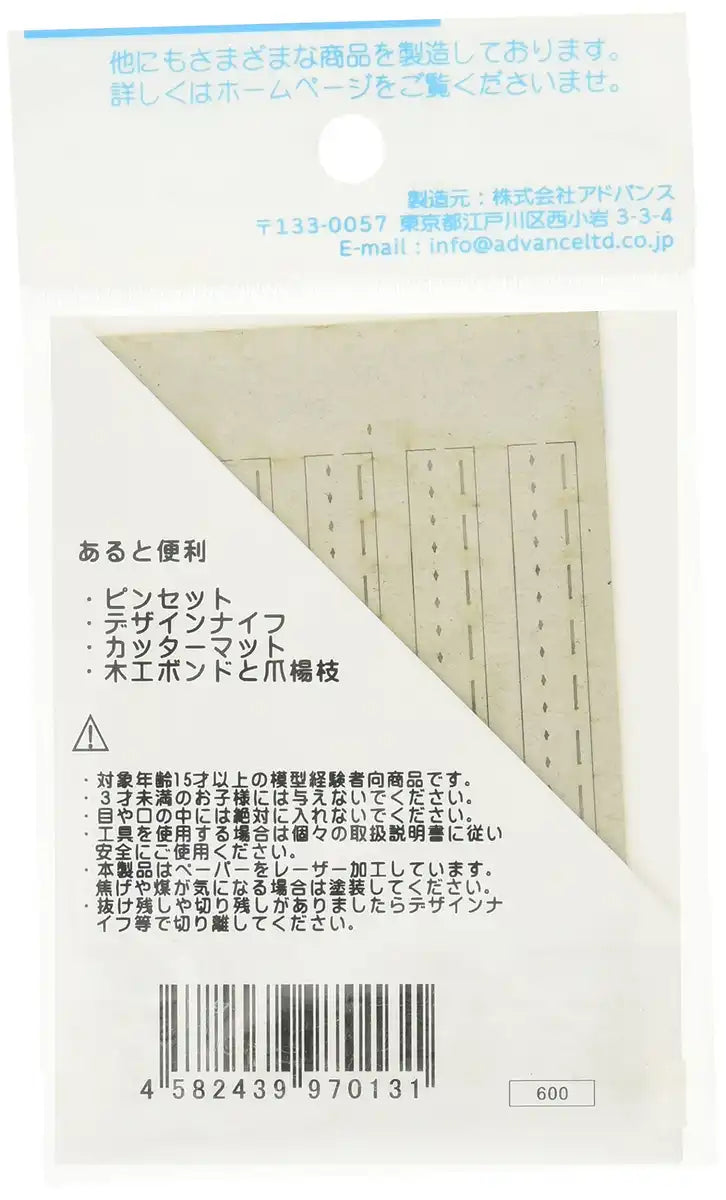 他にもさまざまな商品を製造しております。
詳しくはホームページをご覧くださいませ。
製造元：株式会社アドバンス
〒133-0057 東京都江戸川区西小岩 3-3-4
E-mail：info@advanceltd.co.jp
あると便利
・ピンセット
・デザインナイフ
・カッターマット
・木工ボンドと爪楊枝
・対象年齢15才以上の模型経験者向商品です。
・３才未満のお子様には与えないでください。
・目や口の中には絶対に入れないでください。
・工具を使用する場合は個々の取扱説明書に従い
安全にご使用ください。
・本製品はペーパーをレーザー加工しています。
焦げや煤が気になる場合は塗装してください。
・抜け残しや切り残しがありましたらデザインナ
イフ等で切り離してください。
4 582439 970131
600